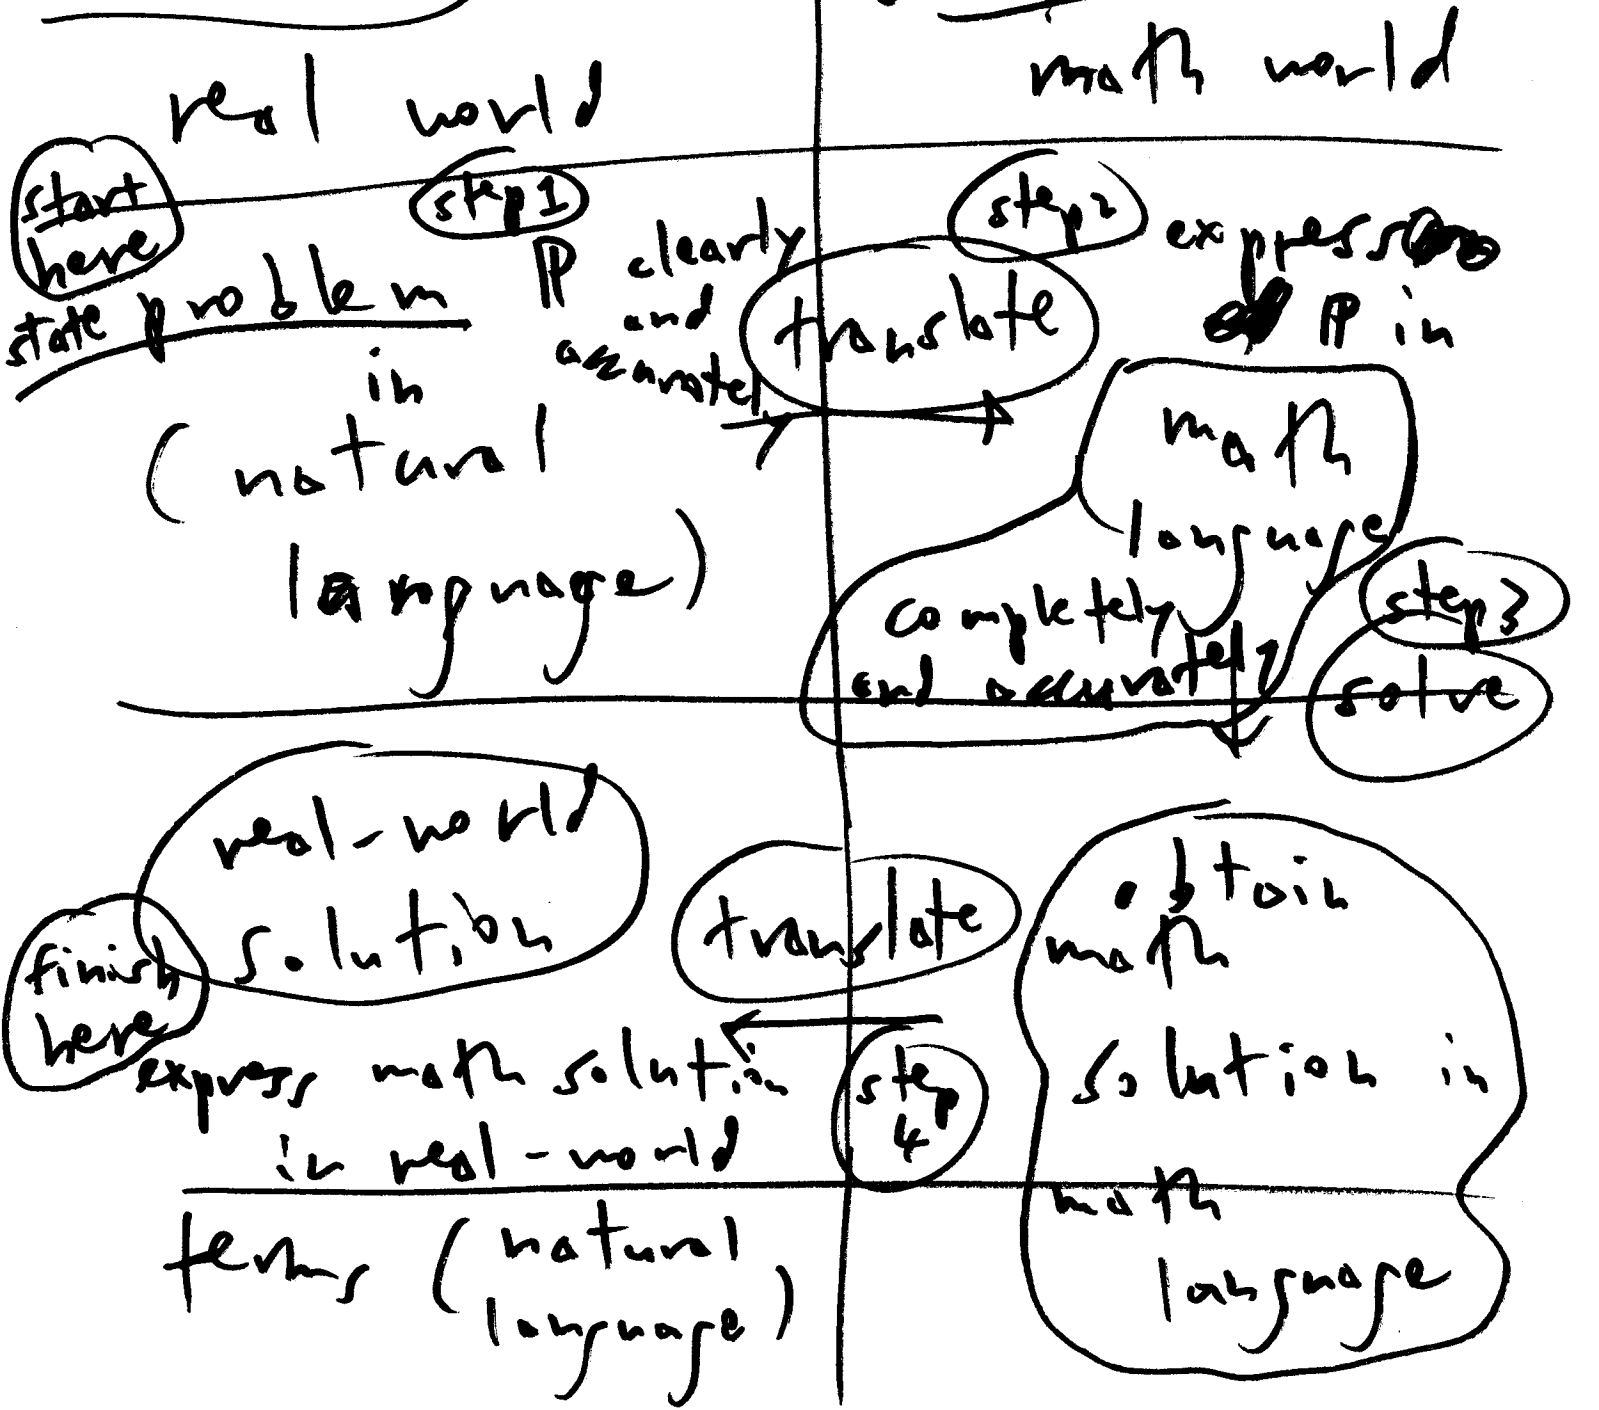 real world
math world
start
here
step 1
step 2
state problem P clearly
and
accurately
in
(natural
language)
translate
express
P in
math
language
completely
and accurately
step 3
solve
real-world
solution
finish
here
translate
step
4
obtain
math
solution in
math
language
express math solution
in real-world
terms (natural
language)